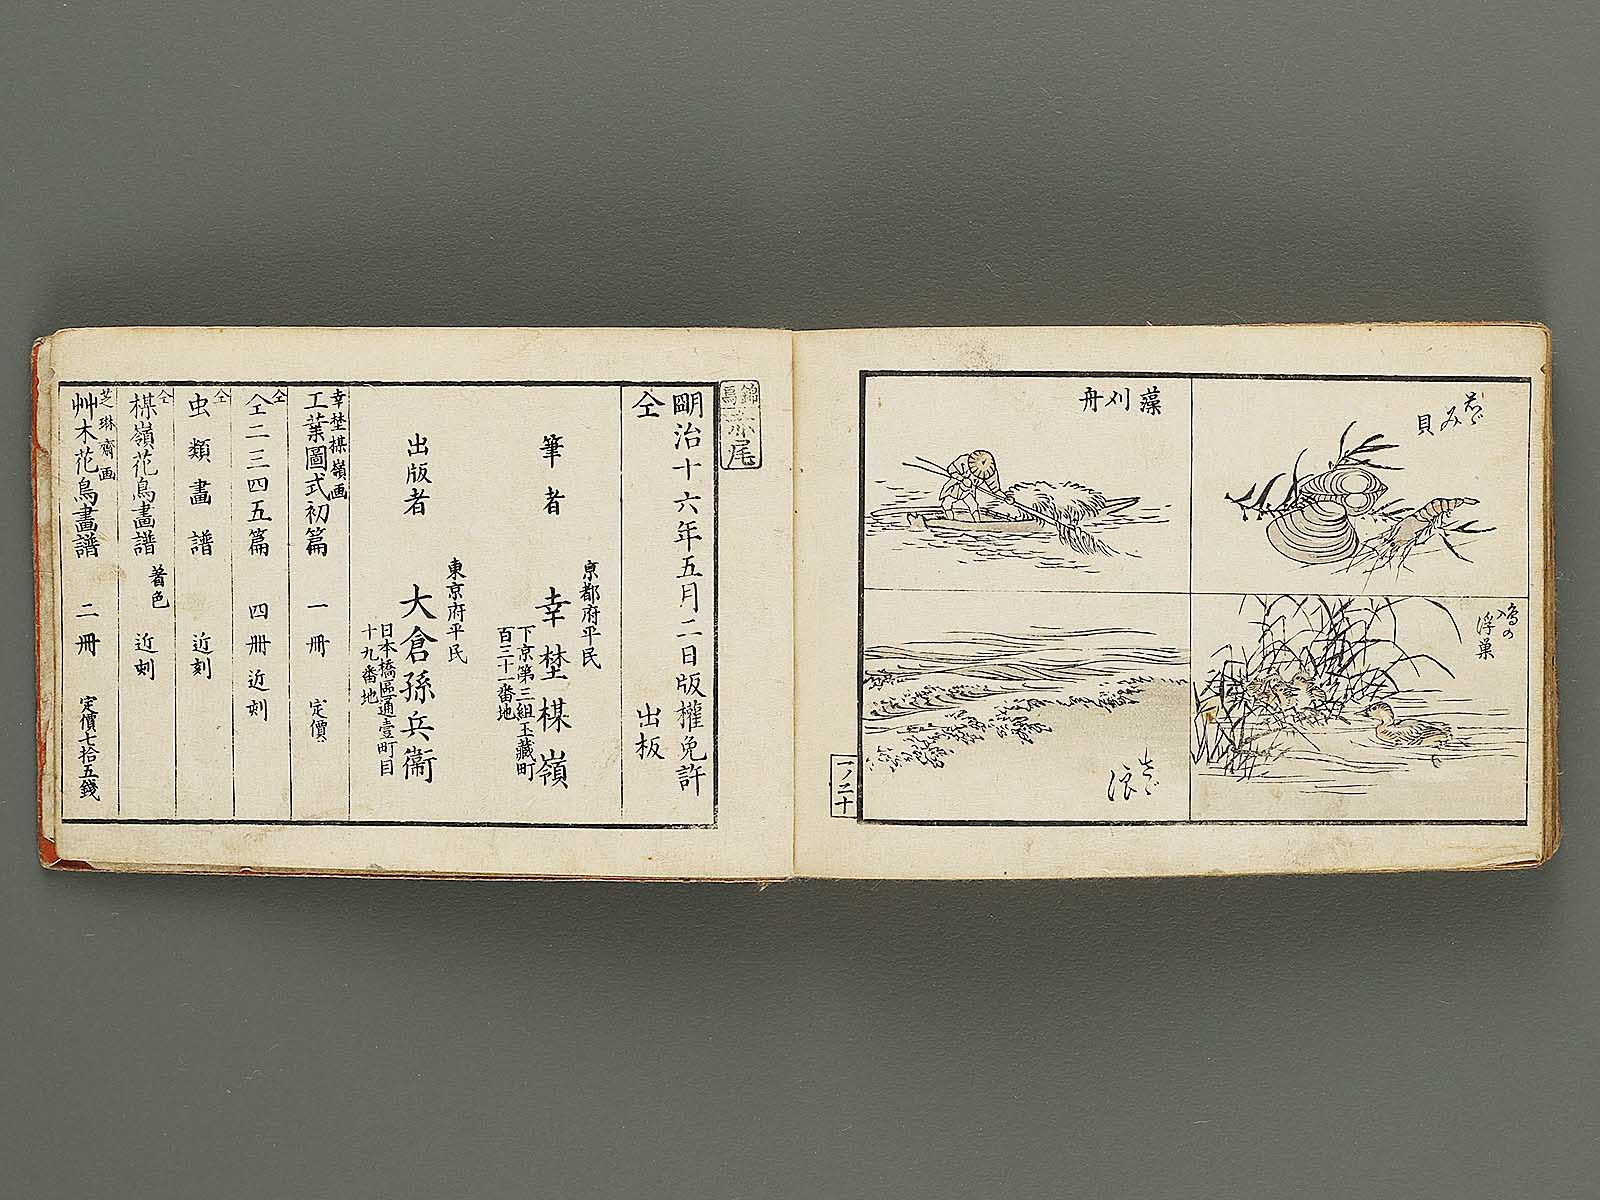 しゞみ貝
藻刈舟
鳰の浮巣
さゞ浪
一ノ二十
明治十六年五月二日版權免許
仝 出板
筆者
京都府平民
下京第三組玉藏町
百三十一番地
幸埜楳嶺
出版者
東京府平民
日本橋區通壹町目
十九番地
大倉孫兵衞
幸埜楳嶺画
工業圖式初篇 一冊 定價
仝
仝二三四五篇 四冊 近刻
仝
虫類畫譜 近刻
仝
楳嶺花鳥畫譜 着色 近刻
芝琳齋画
艸木花鳥畫譜 二冊 定價七拾五錢